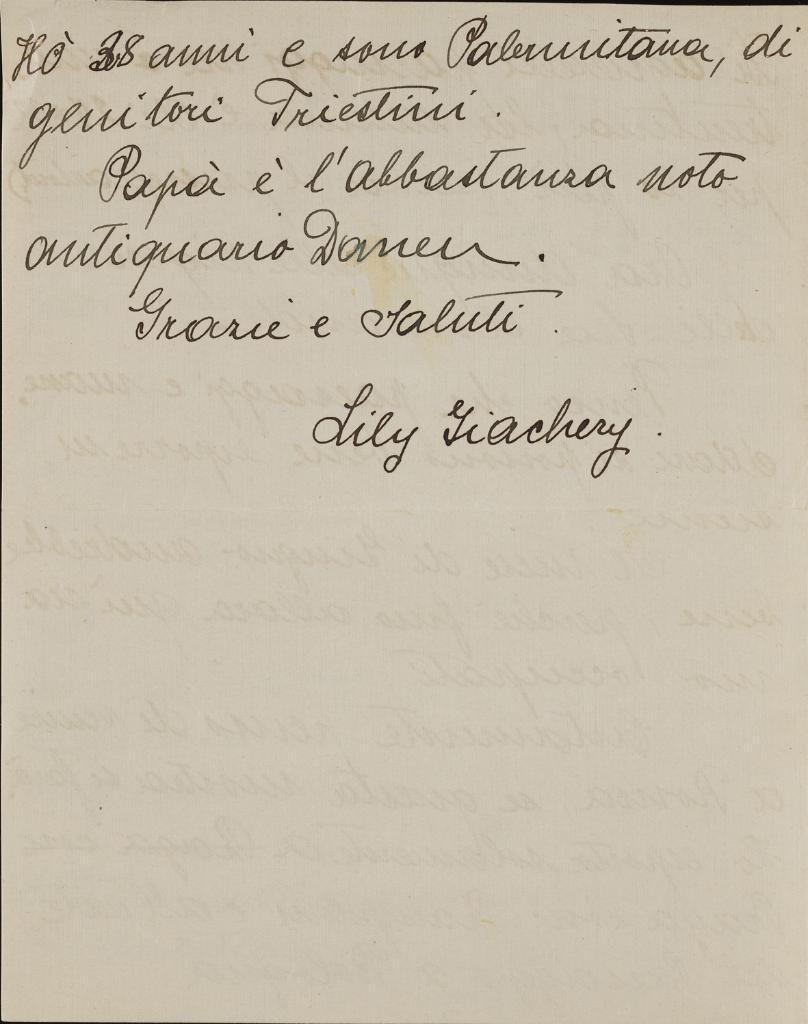 Hò 38 anni e sono Palermitana, di
genitori Triestini.
Papà è l'abbastanza noto
antiquario Daneu.
Grazie e Saluti.
Lily Giachery.